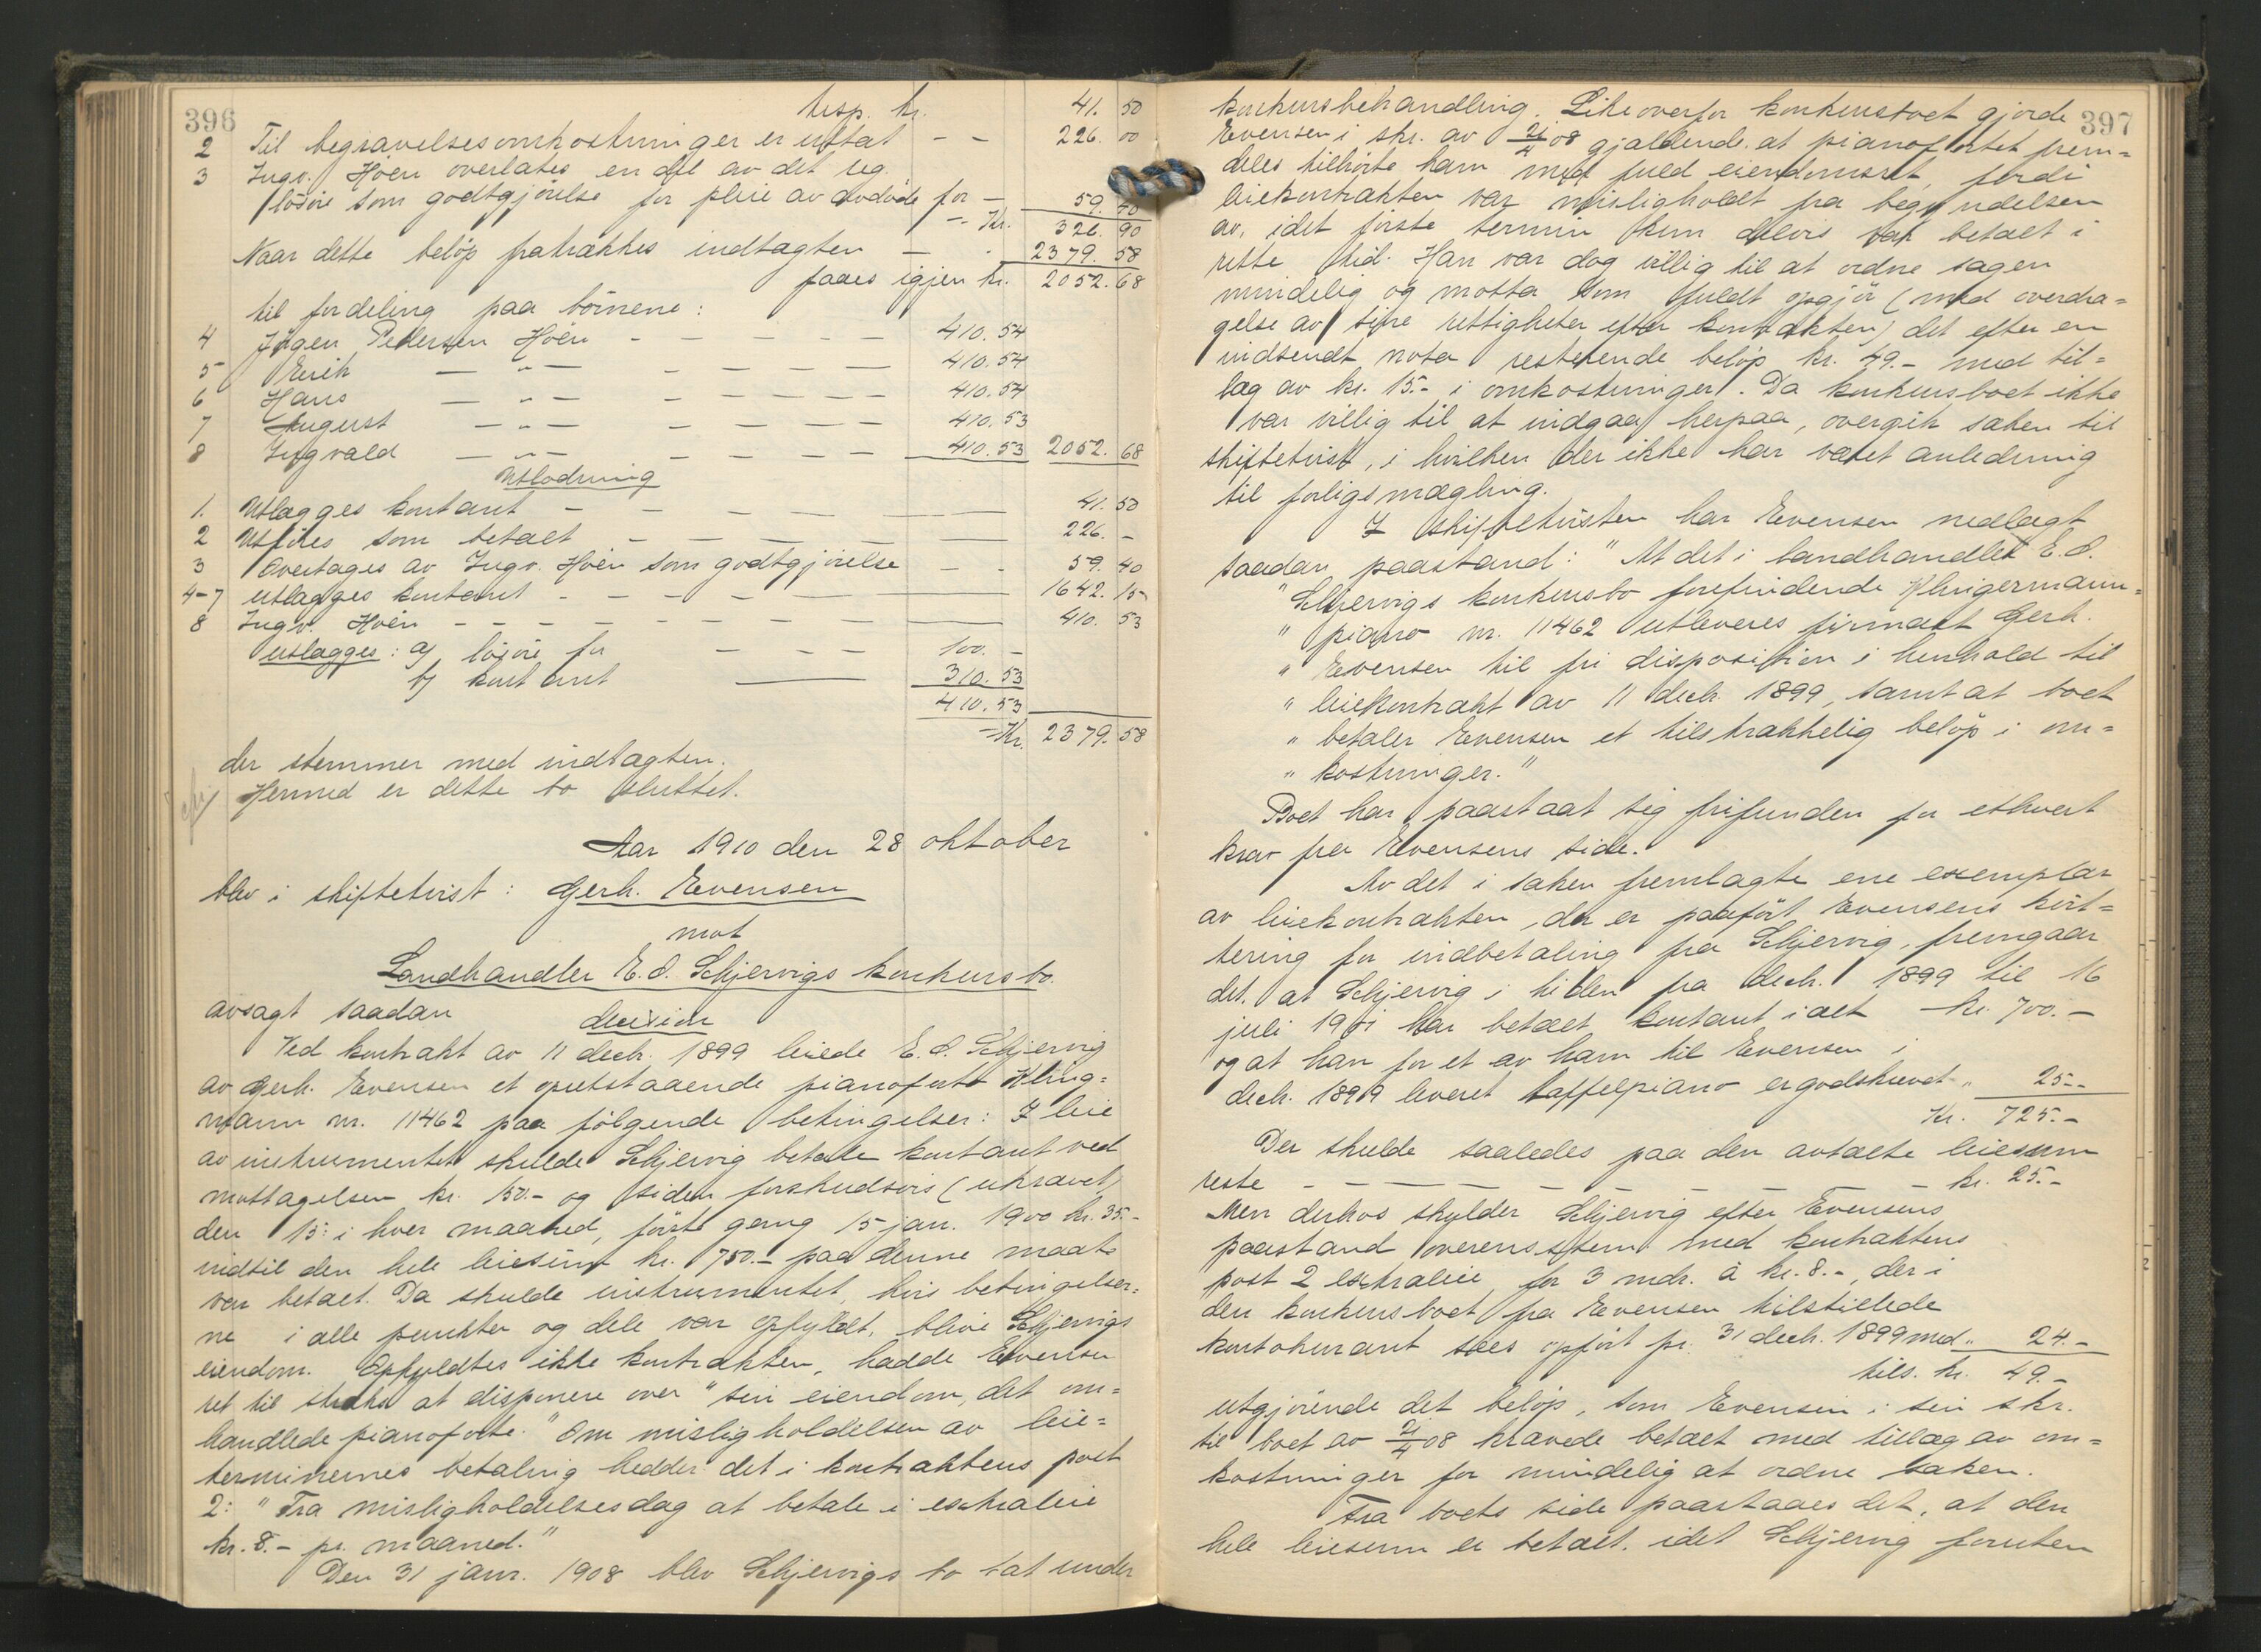 396
trsp. kr. 41. 50
2 Til begravelsesomkostninger er uttat - - 226. 00
3 Ingv. Höen overlates en del av det reg.
lösöre som godtgjörelse for pleie av avdöde for - 59. 40
- Kr. 326. 90
Naar dette belöp fratrækkes indtægten - - 2379. 58
faaes igjen kr. 2052. 68
til fordeling paa börnene:
4 Jörgen Pedersen Höen - - - - - 410.54
5 Erik - " - - - - - 410.54
6 Hans - " - - - - - 410.54
7 August - " - - - - - 410.53
8 Ingvald - " - - - - - 410.53 2052. 68
Utlodning
1. Utlægges kontant - - - - 41. 50
2 Utföres som betalt - - - - 226. -
3 Overtages av Ingv. Höen som godtgjörelse - - 59. 40
4-7 utlægges kontant - - - - - 1642. 15
8 Ingv. Höen - - - - - - - - 410. 53
utlægges: a) lösöre for - - - 100. -
b) kontant - 310. 53
410. 53
Kr. 2379. 58
der stemmer med indtægten.
Hermed er dette bo sluttet.
Aar 1910 den 28 oktober
blev i skiftetvist: Gerh. Evensen
mot
Landhandler E. O. Schjervigs konkursbo.
avsagt saadan decision
Ved kontrakt av 11 decbr. 1899 leiede E. O. Schjervig
av Gerh. Evensen et opretstaaende pianoforte Kling=
mann nr. 11462 paa fölgende betingelser: I leie
av instrumentet skulde Schjervig betale kontant ved
mottagelsen kr. 150.- og siden forskudsvis (ukrævet)
den 15: i hver maaned, förste gang 15 jan. 1900 kr. 35.-
indtil den hele leiesum kr. 750.- paa denne maate
var betalt. Da skulde instrumentet, hvis betingelser=
ne i alle punkter og dele var opfyldt, blive Schjervigs
eiendom. Opfyldtes ikke kontrakten, hadde Evensen
ret til straks at disponere over "sin eiendom, det om=
handlede pianoforte." Om misligholdelsen av leie=
terminernes betaling hedder det i kontraktens post
2: "Fra misligholdelsesdag at betale i extraleie
kr. 8.- pr. maaned."
Den 31 janr. 1908 blev Schjervigs bo tat under
397
konkursbehandling. Likeoverfor konkursboet gjorde
Evensen i skr. av 21/4 08 gjældende at pianofortet frem=
deles tilhörte ham med fuld eiendomsret, fordi
leiekontrakten var misligholdt fra begyndelsen
av, idet förste termin kun delvis var betalt i
rette tid. Han var dog villig til at ordne sagen
mindelig og motta som fuldt opgjör (med overdra=
gelse av sine rettigheter efter kontrakten) det efter en
indsendt nota resterende belöp kr. 49.- med til=
læg av kr. 15.- i omkostninger. Da konkursboet ikke
var villig til at indgaa herpaa, overgik saken til
skiftetvist, i hvilken der ikke har været anledning
til forligsmægling.
I skiftetvisten har Evensen nedlagt
saadan paastand: "At det i landhandler E. O.
"Schjervigs konkursbo forefindende Klingermann=
" piano nr. 11462 utleveres firmaet Gerh.
" Evensen til fri disposition i henhold til
" leiekontrakt av 11 decb. 1899, samt at boet
" betaler Evensen et tilstrækkelig belöp i om=
" kostninger."
Boet har paastaat sig frifunden for ethvert
krav fra Evensens side.
Av det i saken fremlagte ene exemplar
av leiekontrakten, der er paaført Evensens kvit=
tering for indbetaling fra Schjervig, fremgaar
det, at Schjervig i tiden fra decb. 1899 til 16
juli 1901 har betalt kontant i alt - kr. 700.-
og at han for et av ham til Evensen i
decb. 1899 leveret taffelpiano er godskrevet " 25.-
Kr. 725.-
Der skulde saaledes paa den avtalte leiesum
reste - - - - - - - - kr. 25.-
Men derhos skylder Schjervig efter Evensens
paastand overensstem. med kontraktens
post 2 extraleie for 3 mdr. à kr. 8.-, der i
den konkursboet fra Evensen tilstillede
kontokurant sees opfört pr. 31 decb. 1899 med " 24.-
tils. kr. 49.-
utgjörende det belöp, som Evensen i sin skr.
til boet av 21/4 08 krævede betalt med tillæg av om=
kostninger for mindelig at ordne saken.
Fra boets side paastaaes det, at den
hele leiesum er betalt, idet Schjervig foruten